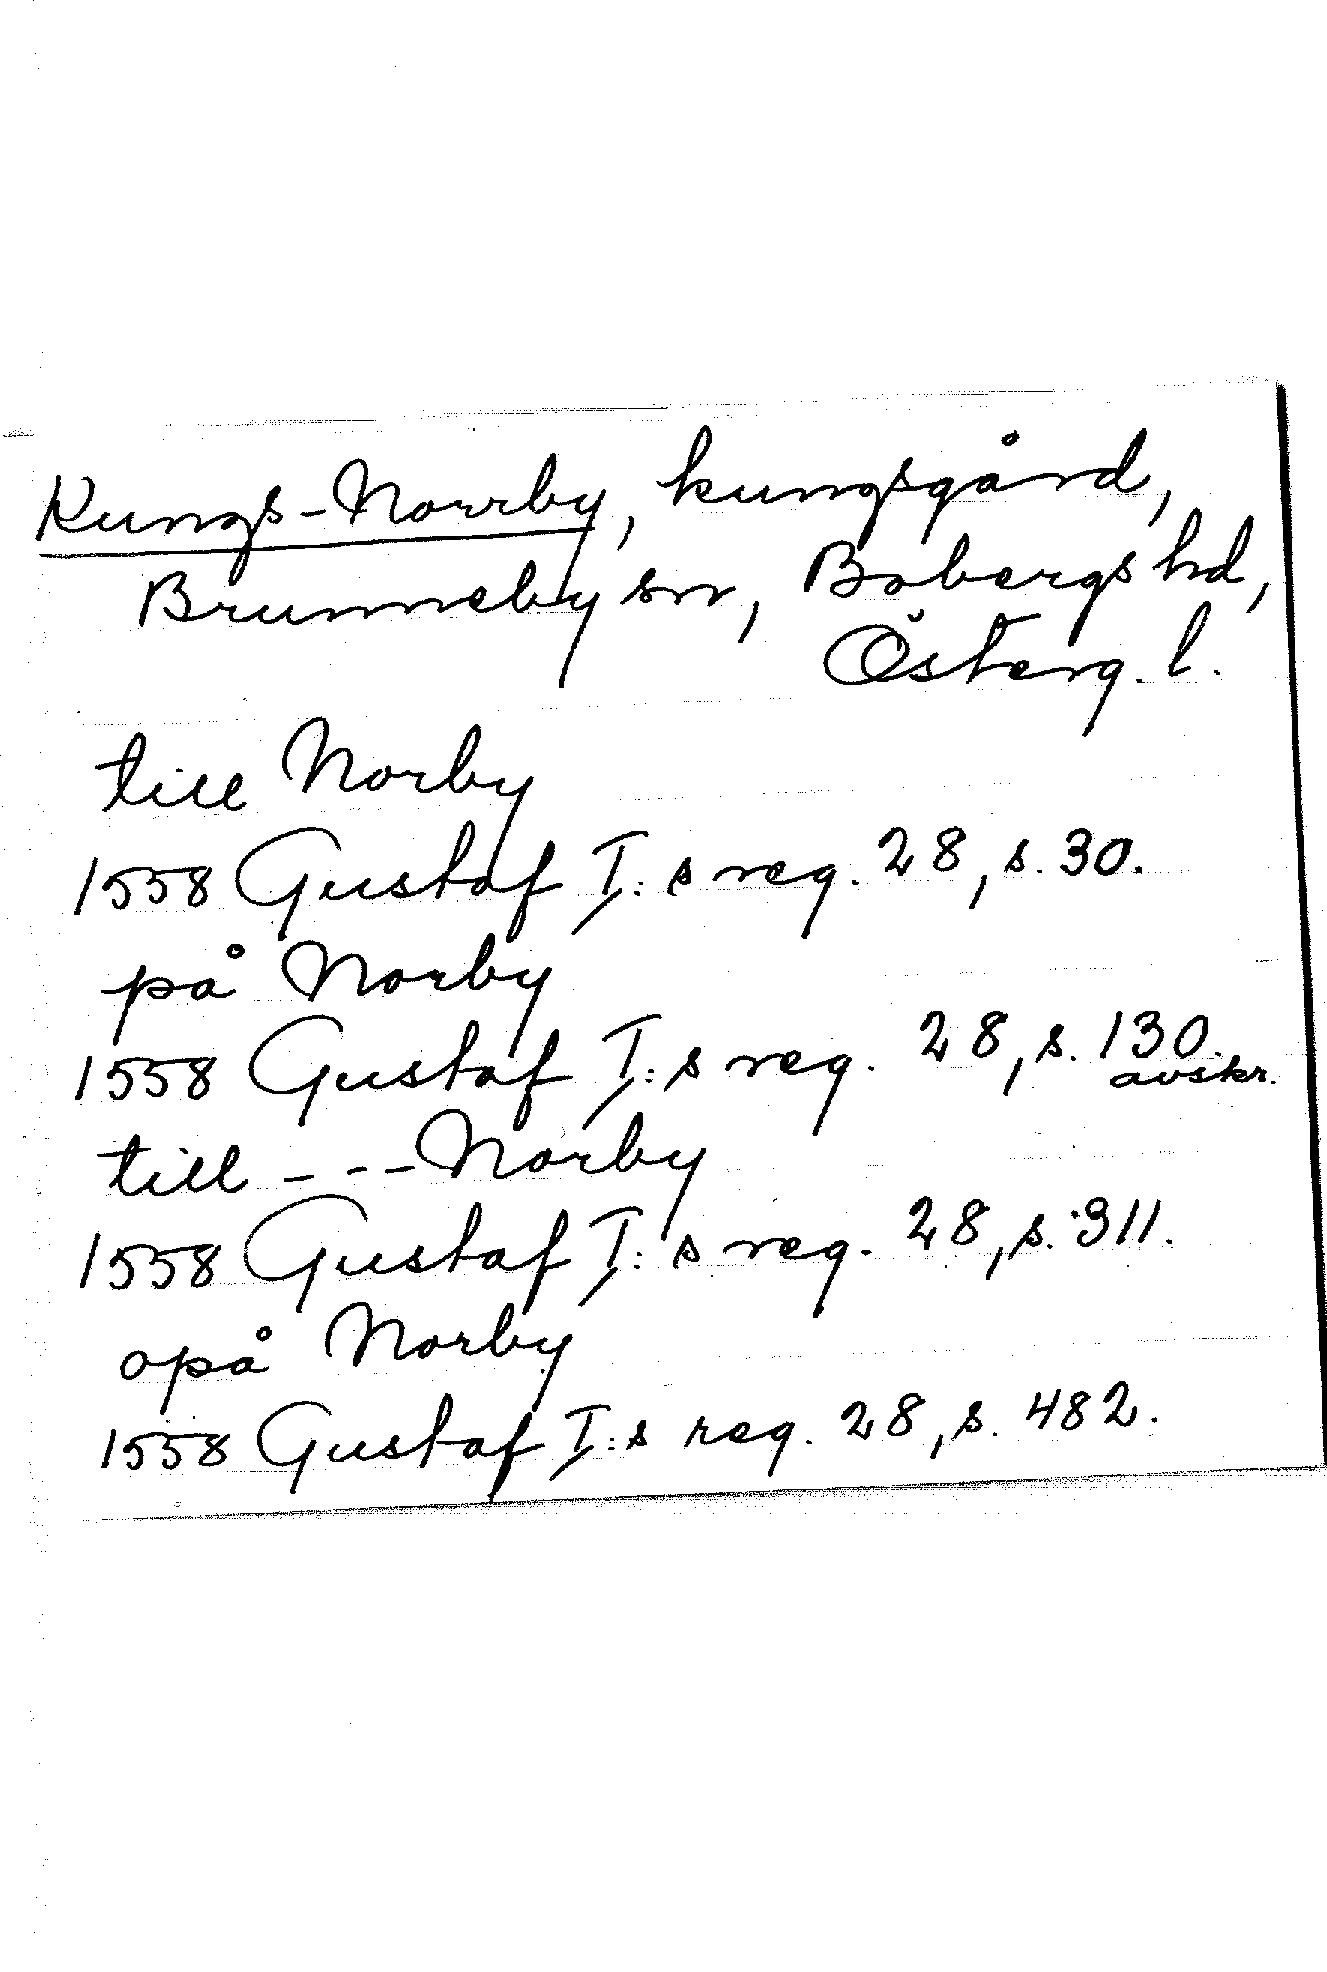 Kungs-Norrby, kungsgård,
Brunneby sn, Bobergs hd,
Österg. l.
till Norby
1558 Gustaf I:s reg. 28, s. 30.
på Norby
1558 Gustaf I:s reg. 28, s. 130.
avskr.
till --- Norby
1558 Gustaf I:s reg. 28, s. 311.
opå Norby
1558 Gustaf I:s reg. 28, s. 482.